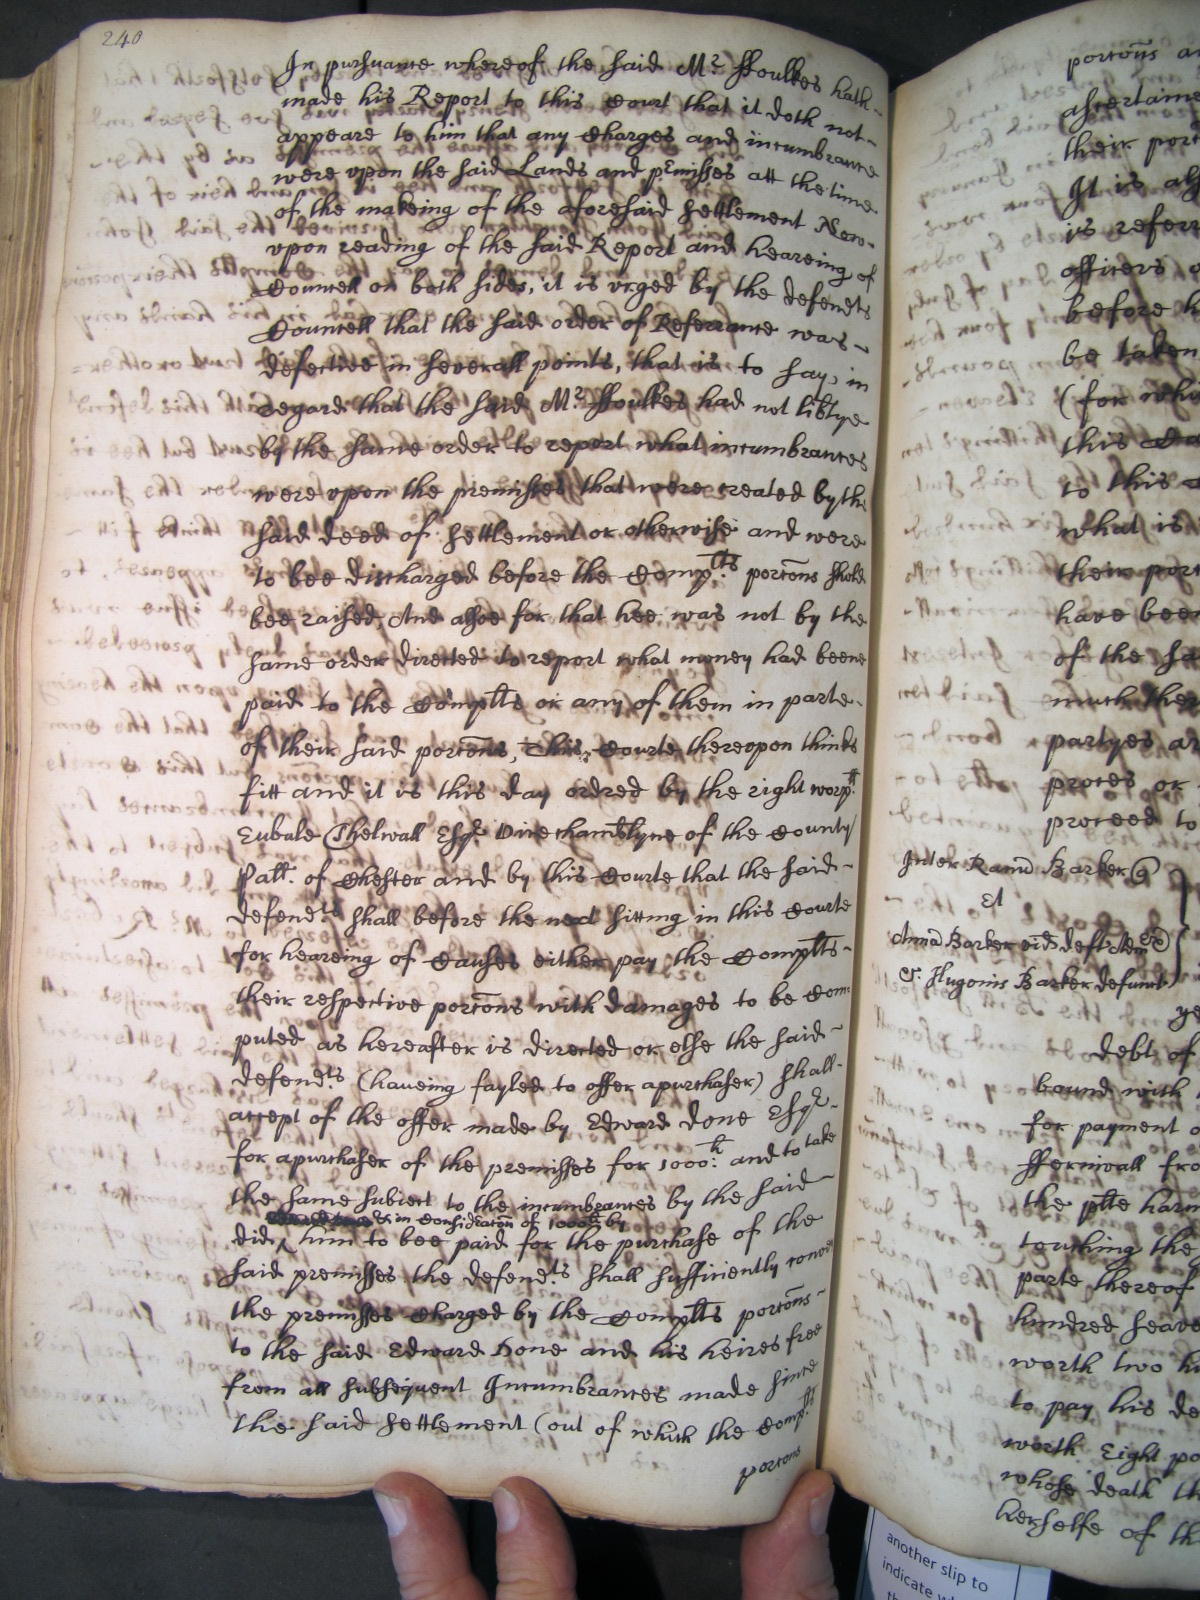 240
In pursuance whereof the said Mr. ffoulkes hath
made his Report to this Court that it doth not
appeare to him that any Charges and incumbrance
were upon the said Lands and pemisses att the time
of the makeing of the aforesaid settlement Now
upon reading of the said Report and heareing of
Councell on both sides, it is vrged by the defendts
Councell that the said order of Referrance was
defective in severall points, that is to say, in
regard that the said Mr. ffoulkes had not lib'tye
by the same order to report what incumbrances
were vpon the premisses that were created by the
said deed of settlement or otherwise and were
to bee discharged before the Compltts porc'ons shold
bee raised. And alsoe for that hee was not by the
same order directed to report what money had beene
paid to the Compltts or any of them in parte
of their said porc'ons, This Courte thereupon thinks
fitt and it is this day ordred by the right worpll
Eubule Thelwall Esqr. Vicechamb'lyne of the County
Patt. of Chester and by this Courte that the said
defendts shall before the next sitting in this Courte
for heareing of Causes either pay the Compltts
their respective porc'ons with damages to be Com:
puted as hereafter is directed or else the said
defendts (haueing fayled to offer a purchaser) shall
accept of the offer made by Edward Done Esqr.
for a purchaser of the premisses for 1000:li and to take
the same subiect to the incumbrances by the said
& in Considerac'on of 1000li by
did, him to bee paid for the purchase of the
said premisses the defendts shall sufficiently convey
the premisses Charged by the Compltts porc'ons
to the said Edward Done and his heires free
from all subsequent Incumbrances made since
the said settlement (out of which the Compltts
porcons
porc'ons
ascertaine
their porc
It is
is referr
officers
before
be taken
(for who
this
to this
what is
their porc
have been
of the sa
much
partyes ar
proces or
proceed to
Inter Barker
Et
Barker vid deft
Hugonis Barker defunct
debt of
bound with
for payment
ffernivall fro
the plte harm
touching the
parte thereof
hundred seave
worth two hu
to pay his de
worth Eight po
whose death th
herselfe of th
another slip to
indicate